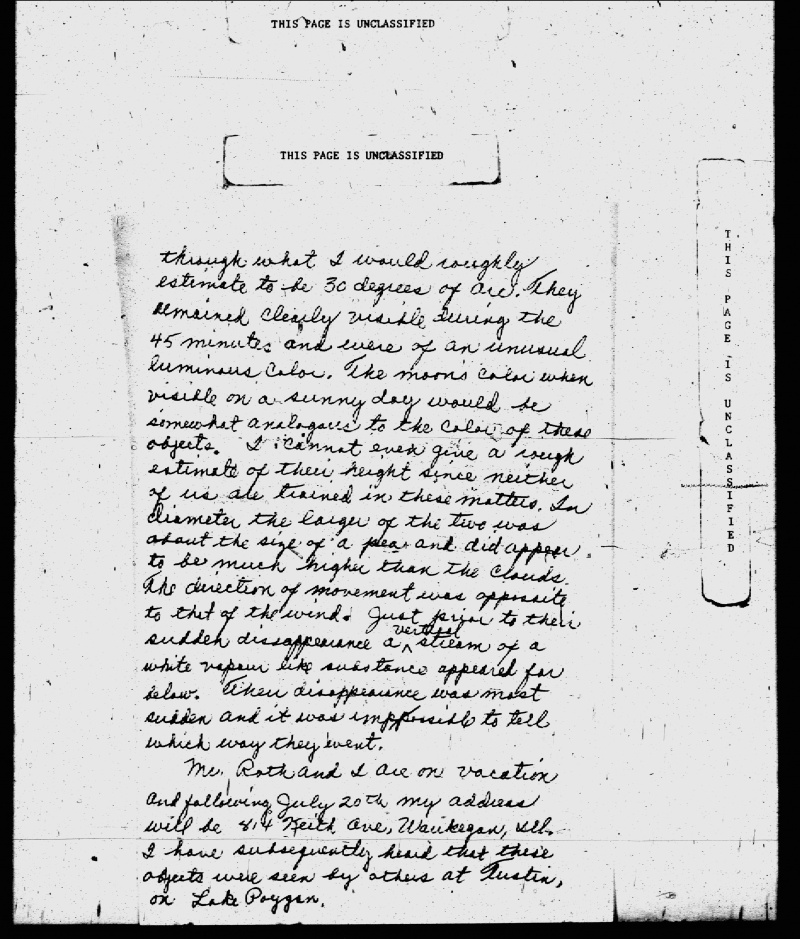 THIS PAGE IS UNCLASSIFIED
THIS PAGE IS UNCLASSIFIED
through what I would roughly
estimate to be 30 degrees of arc. They
remained clearly visible during the
45 minutes and were of an unusual
luminous color. The moon's color when
visible on a sunny day would be
somewhat analogous to the color of these
objects. I cannot even give a rough
estimate of their height since neither
of us are trained in these matters. In
diameter the larger of the two was
about the size of a pea and did appear
to be much higher than the clouds.
The direction of movement was opposite
to that of the wind. Just prior to their
sudden dissappearance a vertical stream of a
white vapour like substance appeared far
below. Their disappearance was most
sudden and it was impossible to tell
which way they went.
Mr. Roth and I are on vacation
and following July 20th my address
will be 814 Keith Ave, Waukegan, Ill.
I have subsequently heard that these
objects were seen by others at Tustin,
on Lake Poygan.
THIS PAGE IS UNCLASSIFIED